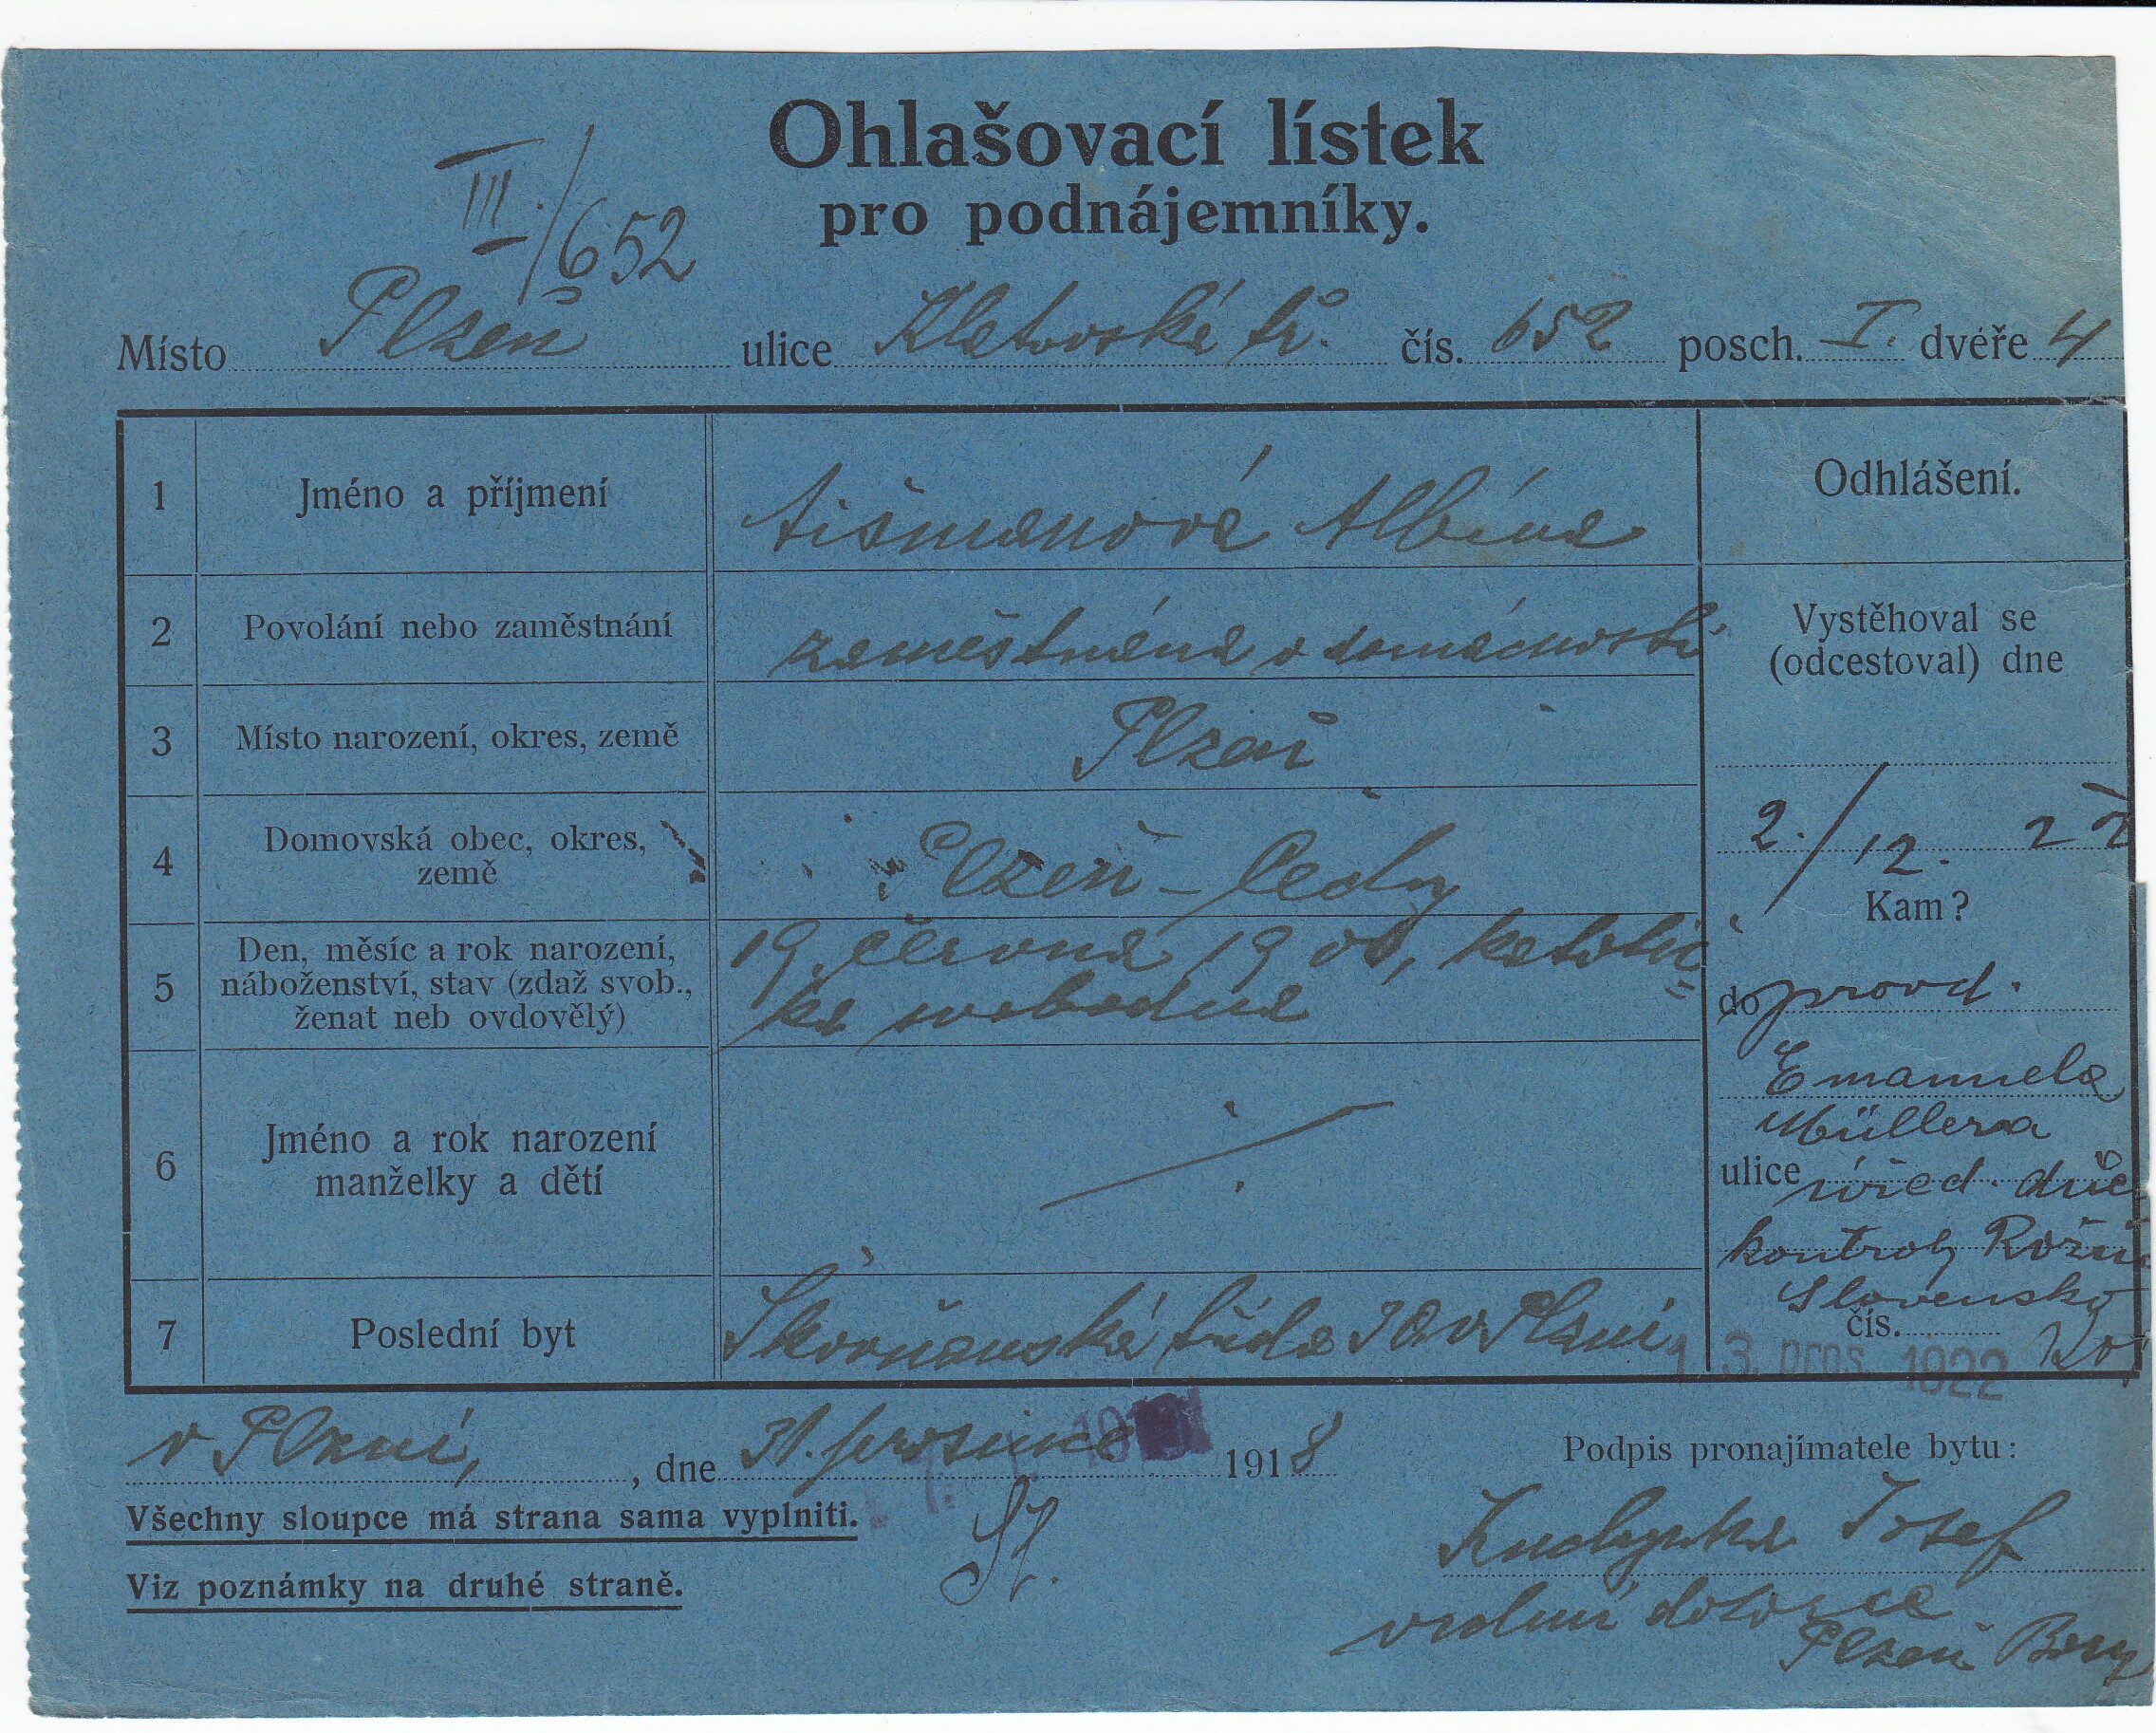 Ohlašovací lístek
pro podnájemníky.
III./652
Místo Plzeň ulice Klatovská tř. čís. 652 posch. I. dvéře 4
1 Jméno a příjmení Tišmanová Albína
Odhlášení.
2 Povolání nebo zaměstnání zaměstnána v domácnosti
Vystěhoval se
(odcestoval) dne
3 Místo narození, okres, země Plzeň
2./12. 22
4 Domovská obec, okres,
země
Plzeň
Kam?
5 Den, měsíc a rok narození,
náboženství, stav (zdaž svob.,
ženat neb ovdovělý)
19. června 19, katolic
ka svobodna
do provd.
Emanuela
Müllera
6 Jméno a rok narození
manželky a dětí
ulice úřed. důch
kontroly
Slovensko
čís.
7 Poslední byt Skvrňanská třída v Plzni
13. pros. 1922
v Plzni, dne 31. prosince 1918
Podpis pronajímatele bytu:
Všechny sloupce má strana sama vyplniti.
Viz poznámky na druhé straně.
St.
Kuchynka Josef
vrchní dozorce
Plzeň Bory